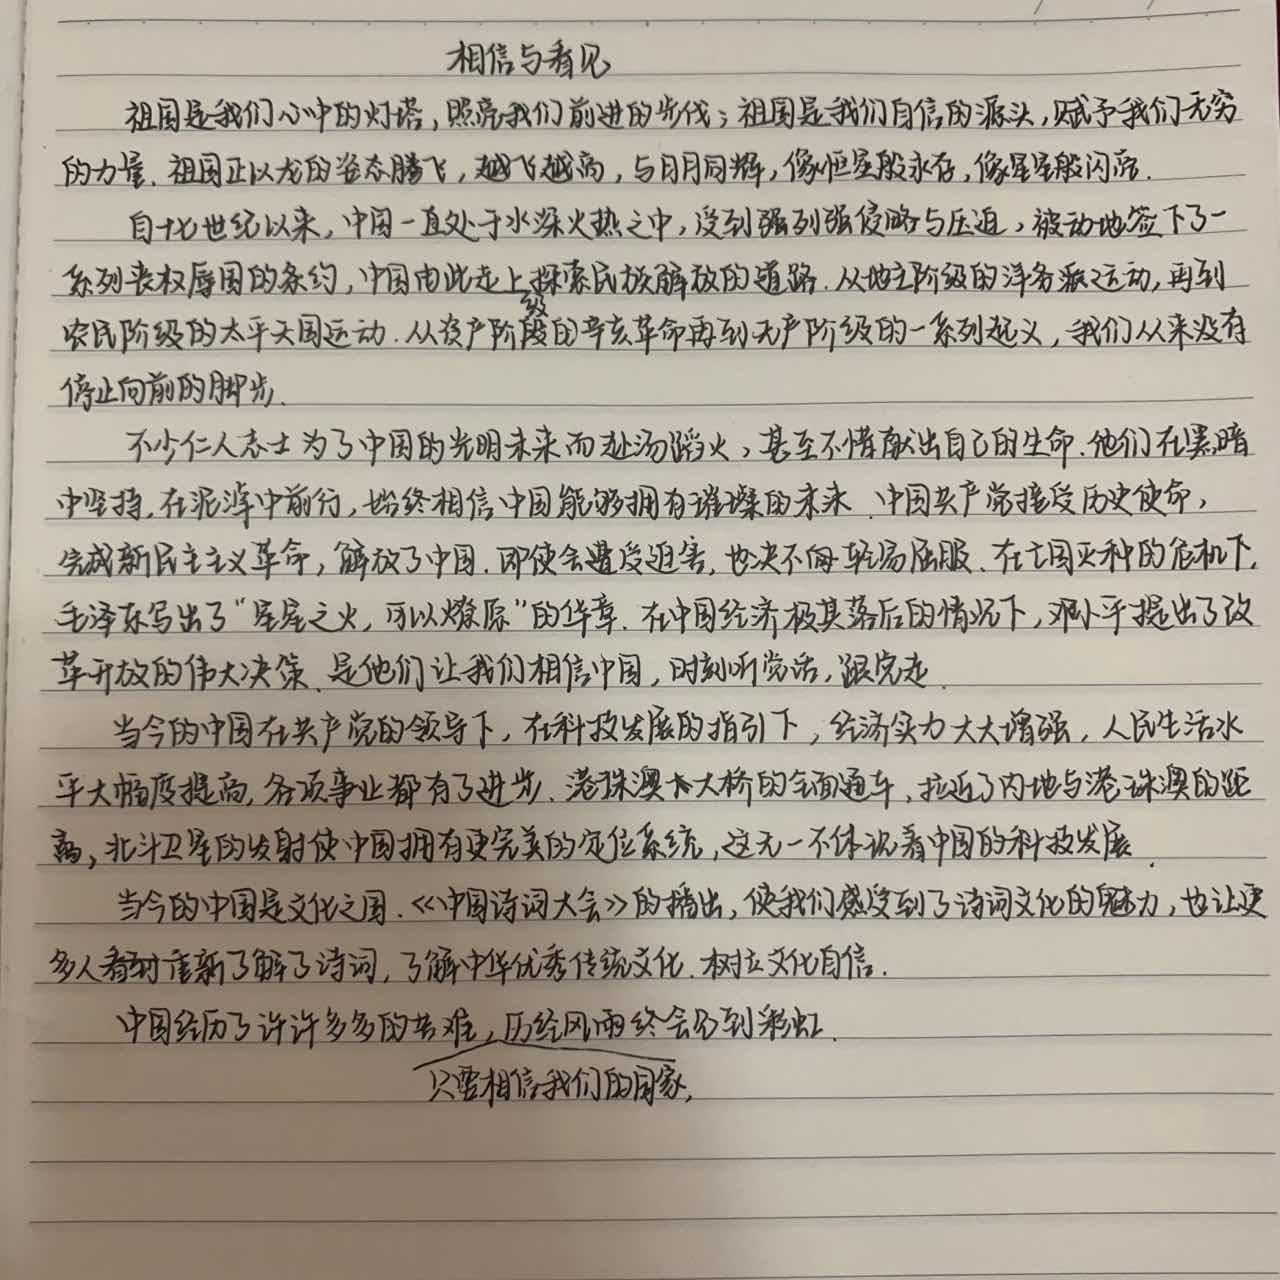 相信与看见
祖国是我们心中的灯塔，照亮我们前进的步伐；祖国是我们自信的源头，赋予我们无穷
的力量．祖国正以龙的姿态腾飞，越飞越高，与日月同辉，像恒星般永存，像星星般闪亮．
自十七世纪以来，中国一直处于水深火热之中，受到强列强侵略与压迫，被动地签下了一
系列丧权辱国的条约，中国由此走上探索民族解放的道路．从地主阶级的洋务派运动，再到
农民阶级的太平天国运动．从资产阶级的辛亥革命再到无产阶级的一系列起义，我们从来没有
停止向前的脚步．
不少仁人志士为了中国的光明未来而赴汤蹈火，甚至不惜献出自己的生命．他们在黑暗
中坚持，在泥泞中前行，始终相信中国能够拥有璀璨的未来．中国共产党接受历史使命，
完成新民主主义革命，解放了中国．即使会遭受迫害，也决不毎轻易屈服．在亡国灭种的危机下，
毛泽东写出了“星星之火，可以燎原”的华章．在中国经济极其落后的情况下，邓小平提出了改
革开放的伟大决策．是他们让我们相信中国，时刻听党话，跟党走．
当今的中国在共产党的领导下，在科技发展的指引下，经济实力大大增强，人民生活水
平大幅度提高，各项事业都有了进步．港珠澳大桥的全面通车，拉近了内地与港珠澳的距
离，北斗卫星的发射使中国拥有更完美的定位系统，这无一不体现着中国的科技发展．
当今的中国是文化之国．《中国诗词大会》的播出，使我们感受到了诗词文化的魅力，也让更
多人重新了解了诗词，了解中华优秀传统文化．树立文化自信．
中国经历了许许多多的苦难，历经风雨终会见到彩虹．
只要相信我们的国家，